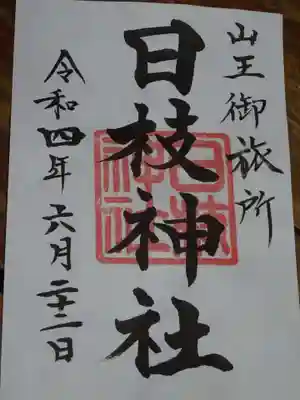 山王御旅所
日枝神社
令和四年六月二十二日
日枝神社